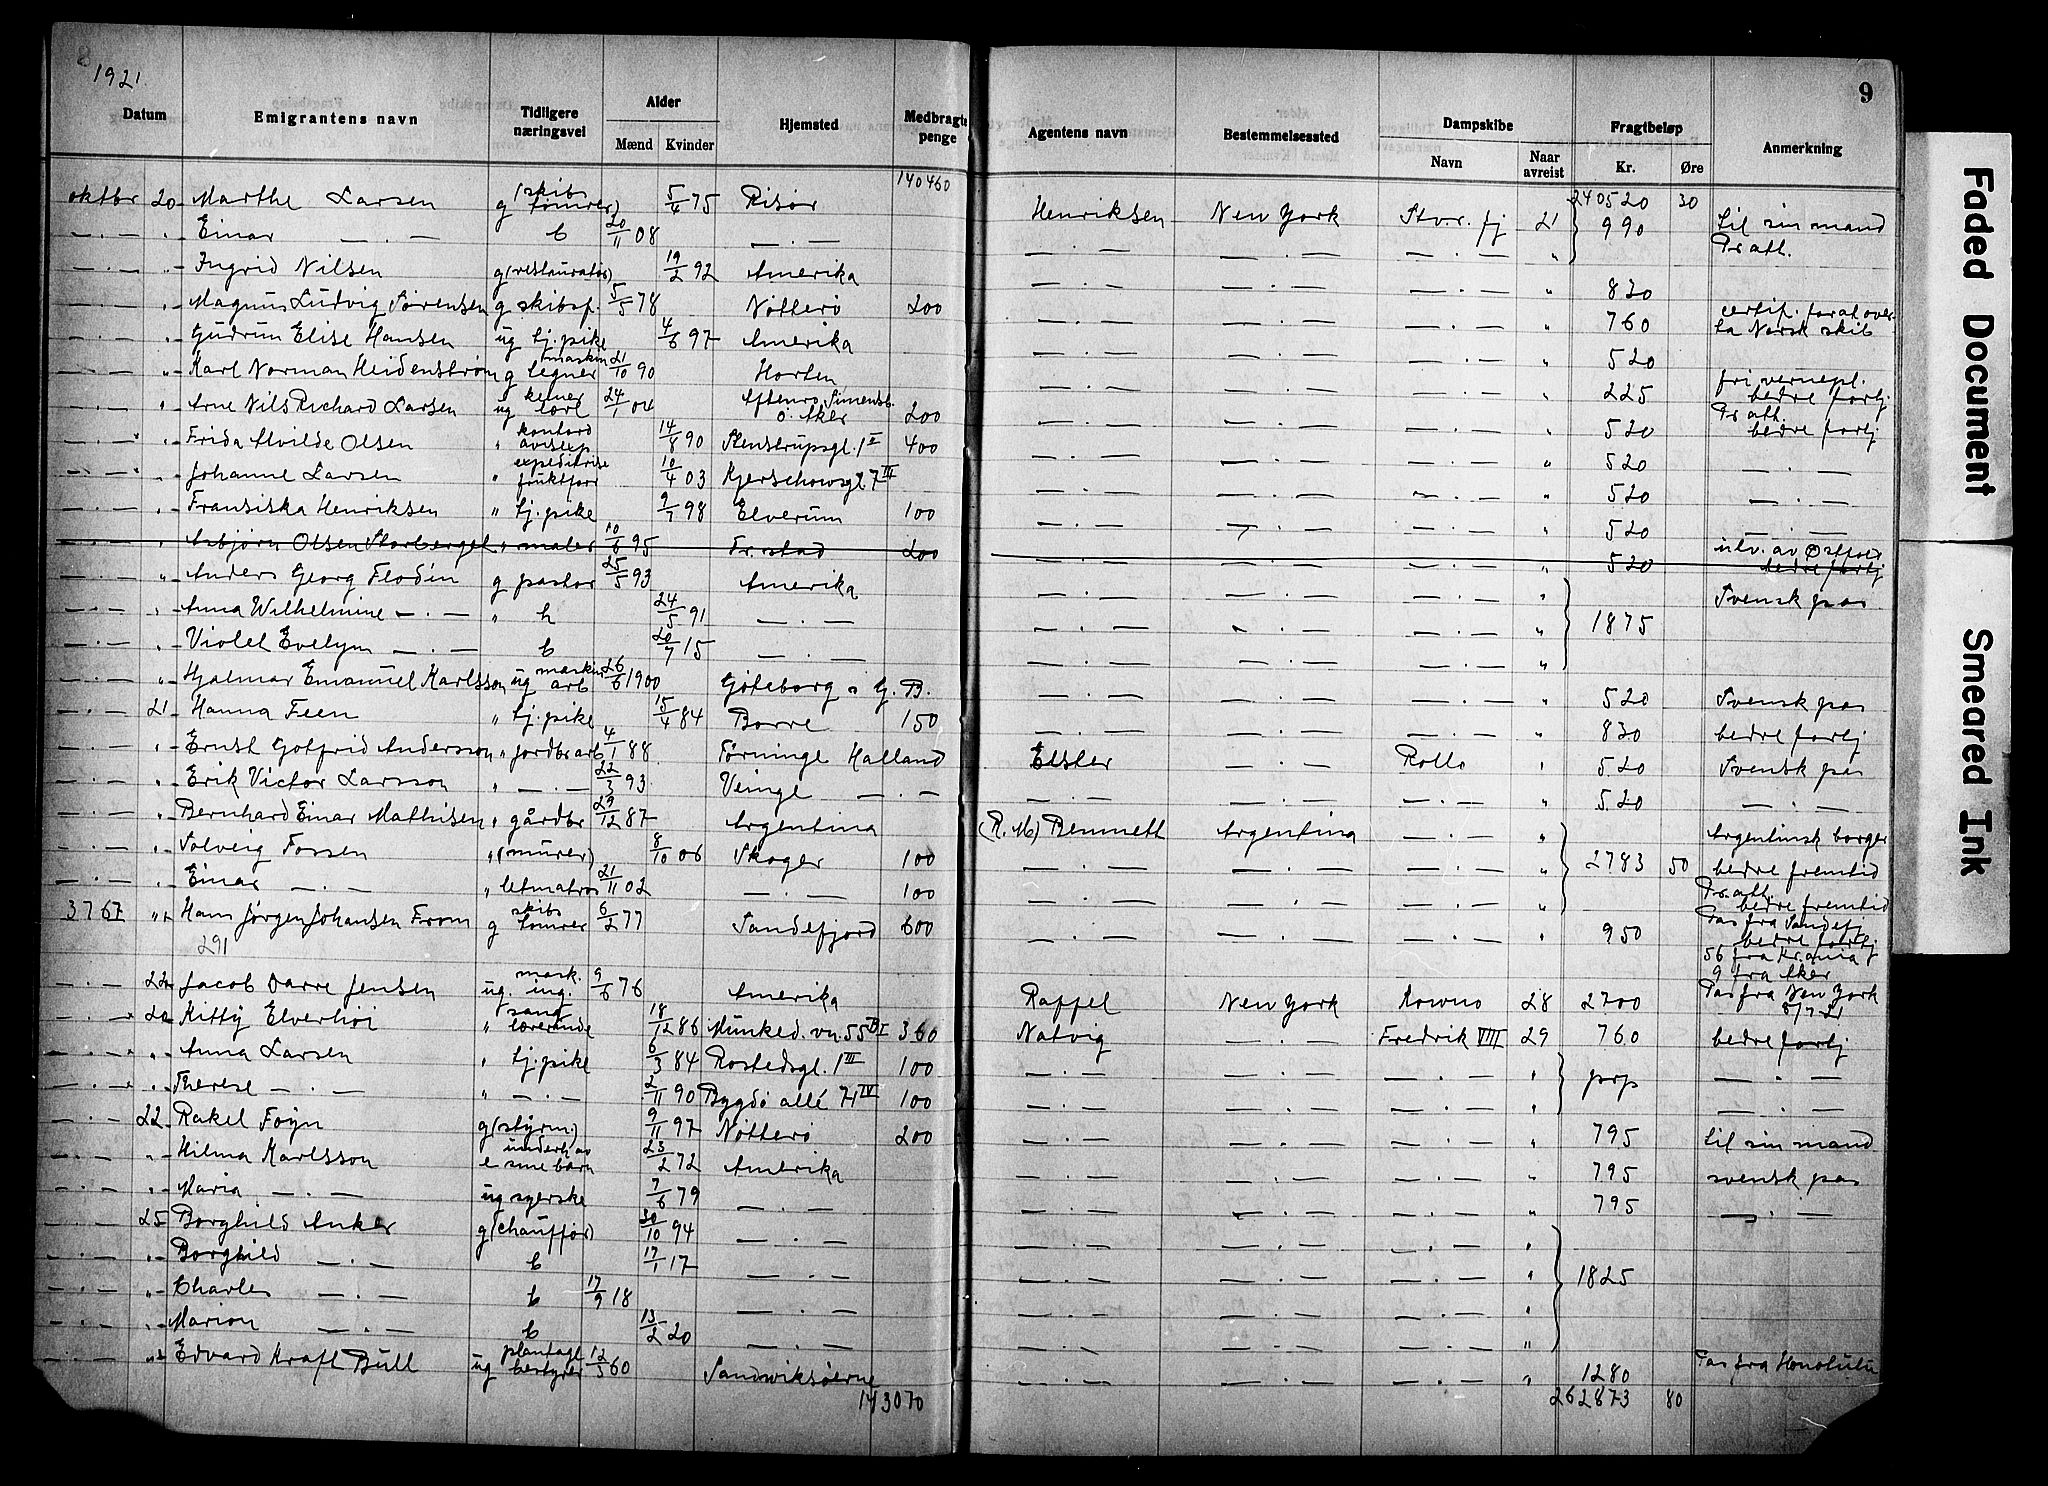 8
1921.
Datum Emigrantens navn Tidligere næringsvei Alder Mænd Kvinder Hjemsted Medbragte penge
140460
oktbr 20 Marthe Larsen g (skibstømrer) 5/4 75 Risør
" Einar — . — b 20/11 08 — . —
" Ingrid Nilsen g (restauratør) 19/2 92 Amerika
" Magnus Ludvig Sørensen g skibsf. 5/5 78 Nøtterø 200
" Gudrun Elise Hansen ug tj.pike 4/6 97 Amerika
" Karl Norman Heidenstrøm g maskin tegner 21/10 90 Horten
" Arne Nils Richard Larsen ug kelner lærl 24/1 04 Ø. Aker 200
" Frida Alvilde Olsen " 14/8 90 Stenstrupsgt. 1 II 400
" Johanne Larsen " expeditrise fruktforr 10/4 03 Kjerschowsgt 7 III
" Fransiska Henriksen " tj.pike 9/7 98 Elverum 100
" Asbjørn Olsen Skorberget " maler 10/6 95 Fr.stad 200
" Anders Georg Flodén g pastor 25/5 93 Amerika
" Anna Wilhelmine — . — " h 24/5 91 — . —
" Violet Evelyn — . — b 20/7 15 — . —
" Hjalmar Emanuel Karlsson ug maskin arb 26/6 1900 Göteborg o G. B.
21 Hanna Feen " tj.pike 15/4 84 Borre 150
" Ernst Gotfrid Andersson " jordbr arb 4/1 88 Tørninge Halland
" Erik Victor Larsson " — . — 22/3 93 Veinge — . —
" Bernhard Einar Mathisen " gårdbr 29/12 87 Argentina
" Solveig Fossen " (murer) 8/10 06 Skoger 100
" Einar — . — " letmatros 21/11 02 — . — 100
3767 " Hans Jørgen Johansen From g skibs tømrer 6/2 77 Sandefjord 600
291
22 Jacob Darre Jensen ug. mask. ing. 9/6 76 Amerika
20 Kitty Elverhøi " sang lærerinde 18/12 86 Munked. vn. 55 B I 360
" Anna Larsen " tj.pike 6/3 84 Rostedsgt. 1 III 100
" Therese — . — " — . — 2/11 90 Bygdø allé 71 IV 100
22 Rakel Føyn g (styrm.) 9/11 97 Nøtterø 200
" Hilma Karlsson e underh. av sine barn 23/2 72 Amerika
" Maria — . — ug syerske 7/6 79 — . —
25 Borghild Anker g (chauffør) 30/10 94 — . —
" Borghild — . — b 17/1 17 — . —
" Charles — . — b 17/9 18 — . —
" Marion — . — b 13/2 20 — . —
" Edvard Kraft Bull ug plantage bestyrer 12/5 60 Sandwiksøerne
143070
9
Agentens navn Bestemmelsessted Dampskibe Navn Naar avreist Fragtbeløp Kr. Øre Anmerkning
240520 30
Henriksen New York Stvr. fj 21 990 til sin mand
— . — — . — — . — " Pr att.
— . — — . — — . — " 830
— . — — . — — . — " 760 certif. for at overta Norsk skib
— . — — . — — . — " 520
— . — — . — — . — " 225 fri vernepl. bedre fortj.
— . — — . — — . — " 520 Pr att. bedre fortj
— . — — . — — . — " 520 — . —
— . — — . — — . — " 520 — . —
— . — — . — — . — " 520 — . —
— . — — . — — . — " 520 utv. av Østfold bedre fortj
— . — — . — — . — " Svensk pas
— . — — . — — . — " 1875
— . — — . — — . — "
— . — — . — — . — " 520 Svensk pas
— . — — . — — . — " 830 bedre fortj
Elster — . — Rollo " 520 Svensk pas
— . — — . — — . — " 520 — . —
(R. M) Bennett Argentina — . — " Argentinsk borger
— . — — . — — . — " 2783 50 bedre fremtid
— . — — . — — . — " Pr. att. bedre fremtid
— . — — . — — . — " 950 Pas fra Sandefj bedre fortj
56 fra Kr.ania
9 fra Aker
Rappel New York Rowno 28 2700 Pas fra New York 5/7 21
Natvig — . — Fredrik VIII 29 760 bedre fortj
— . — — . — — . — " prp — . —
— . — — . — — . — " — . —
— . — — . — — . — " 795 til sin mand
— . — — . — — . — " 795 svensk pas
— . — — . — — . — " 795 — . —
— . — — . — — . — "
— . — — . — — . — " 1825
— . — — . — — . — "
— . — — . — — . — "
— . — — . — — . — " 1280 Pas fra Honolulu
262873 80
Faded Document
Smeared Ink